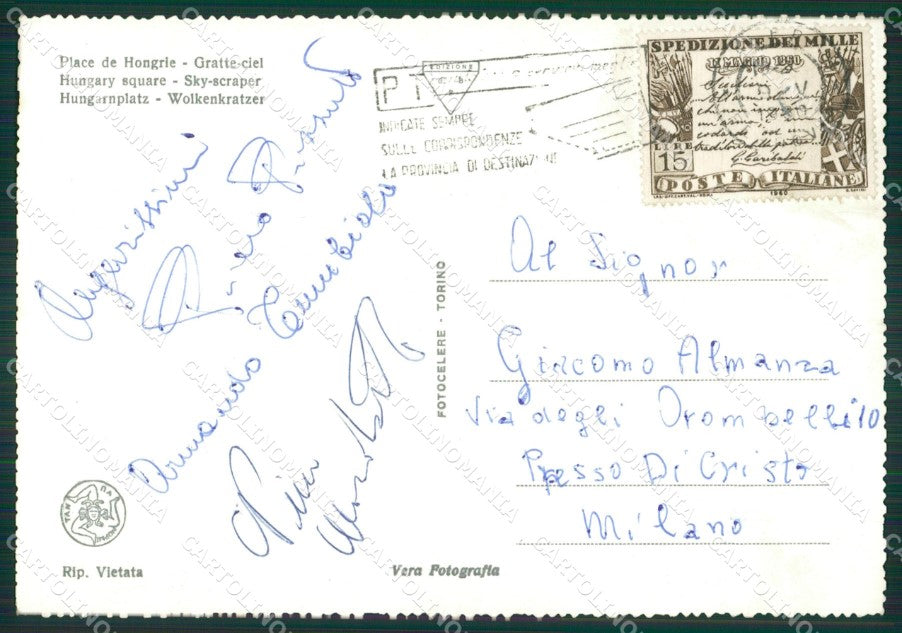 Place de Hongrie - Gratte-ciel
Hungary square - Sky-scraper
Hungarnplatz - Wolkenkratzer
EDIZIONE
PT
INDICATE SEMPRE
SULLE CORRISPONDENZE
LA PROVINCIA DI DESTINAZIONE
SPEDIZIONE DEI MILLE
LIRE
15
G. Garibaldi
POSTE ITALIANE
1960
Augurissimi
Armando
Pier
FOTOCELERE - TORINO
Al Signor
Giacomo Almanza
Via degli Orombelli 10
Presso Di Cristo
Milano
Rip. Vietata
Vera Fotografia
CARTOLINOMANIA